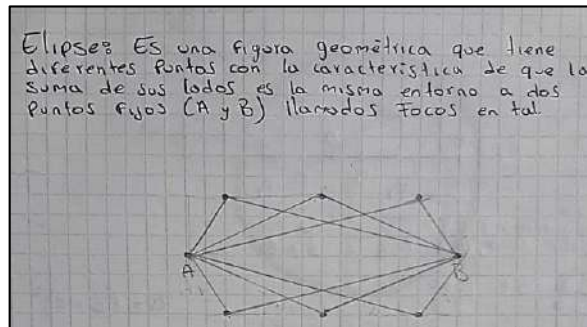 Elipse: Es una figura geométrica que tiene
diferentes Puntos con la característica de que la
suma de sus lados es la misma entorno a dos
Puntos fijos (A y B) llamados Focos en tal.
A
B